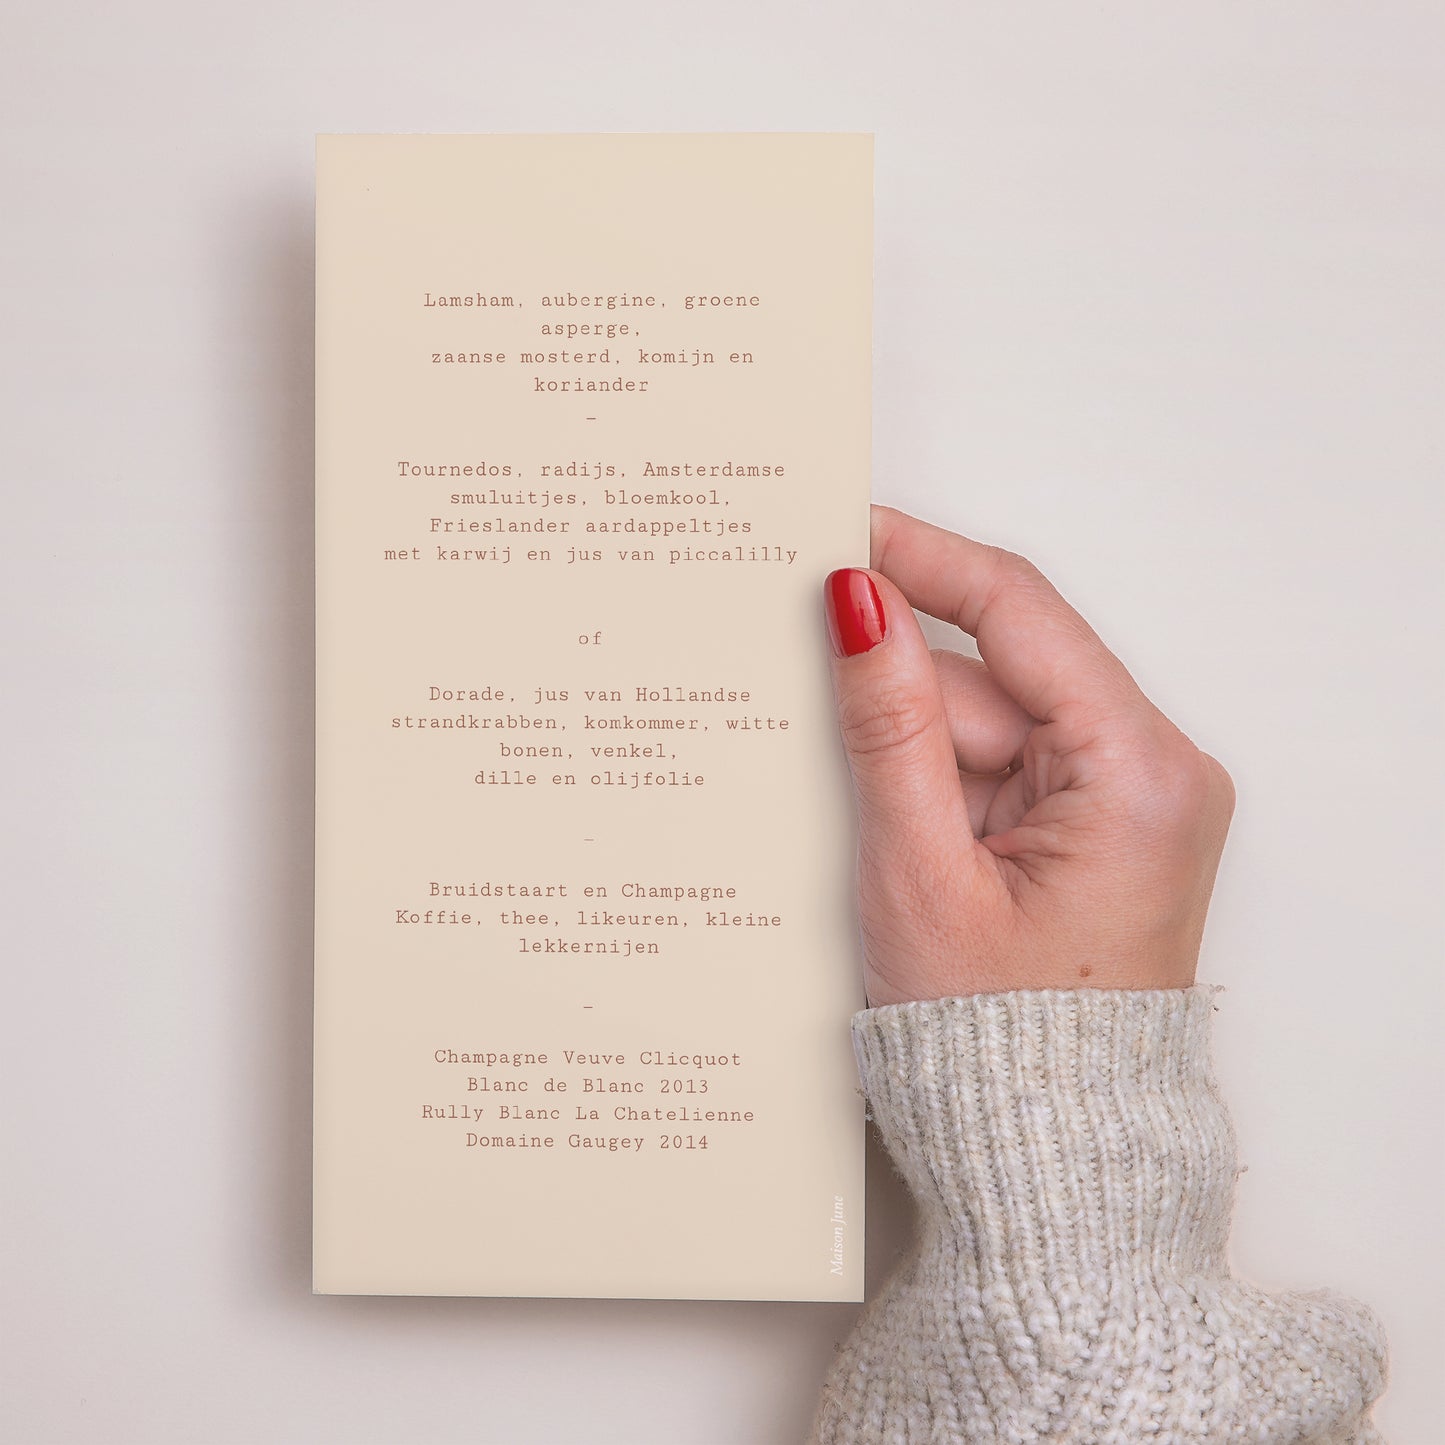 Lamsham, aubergine, groene
asperge,
zaanse mosterd, komijn en
koriander
–
Tournedos, radijs, Amsterdamse
smuluitjes, bloemkool,
Frieslander aardappeltjes
met karwij en jus van piccalilly
of
Dorade, jus van Hollandse
strandkrabben, komkommer, witte
bonen, venkel,
dille en olijfolie
–
Bruidstaart en Champagne
Koffie, thee, likeuren, kleine
lekkernijen
–
Champagne Veuve Clicquot
Blanc de Blanc 2013
Rully Blanc La Chatelienne
Domaine Gaugey 2014
Maison June